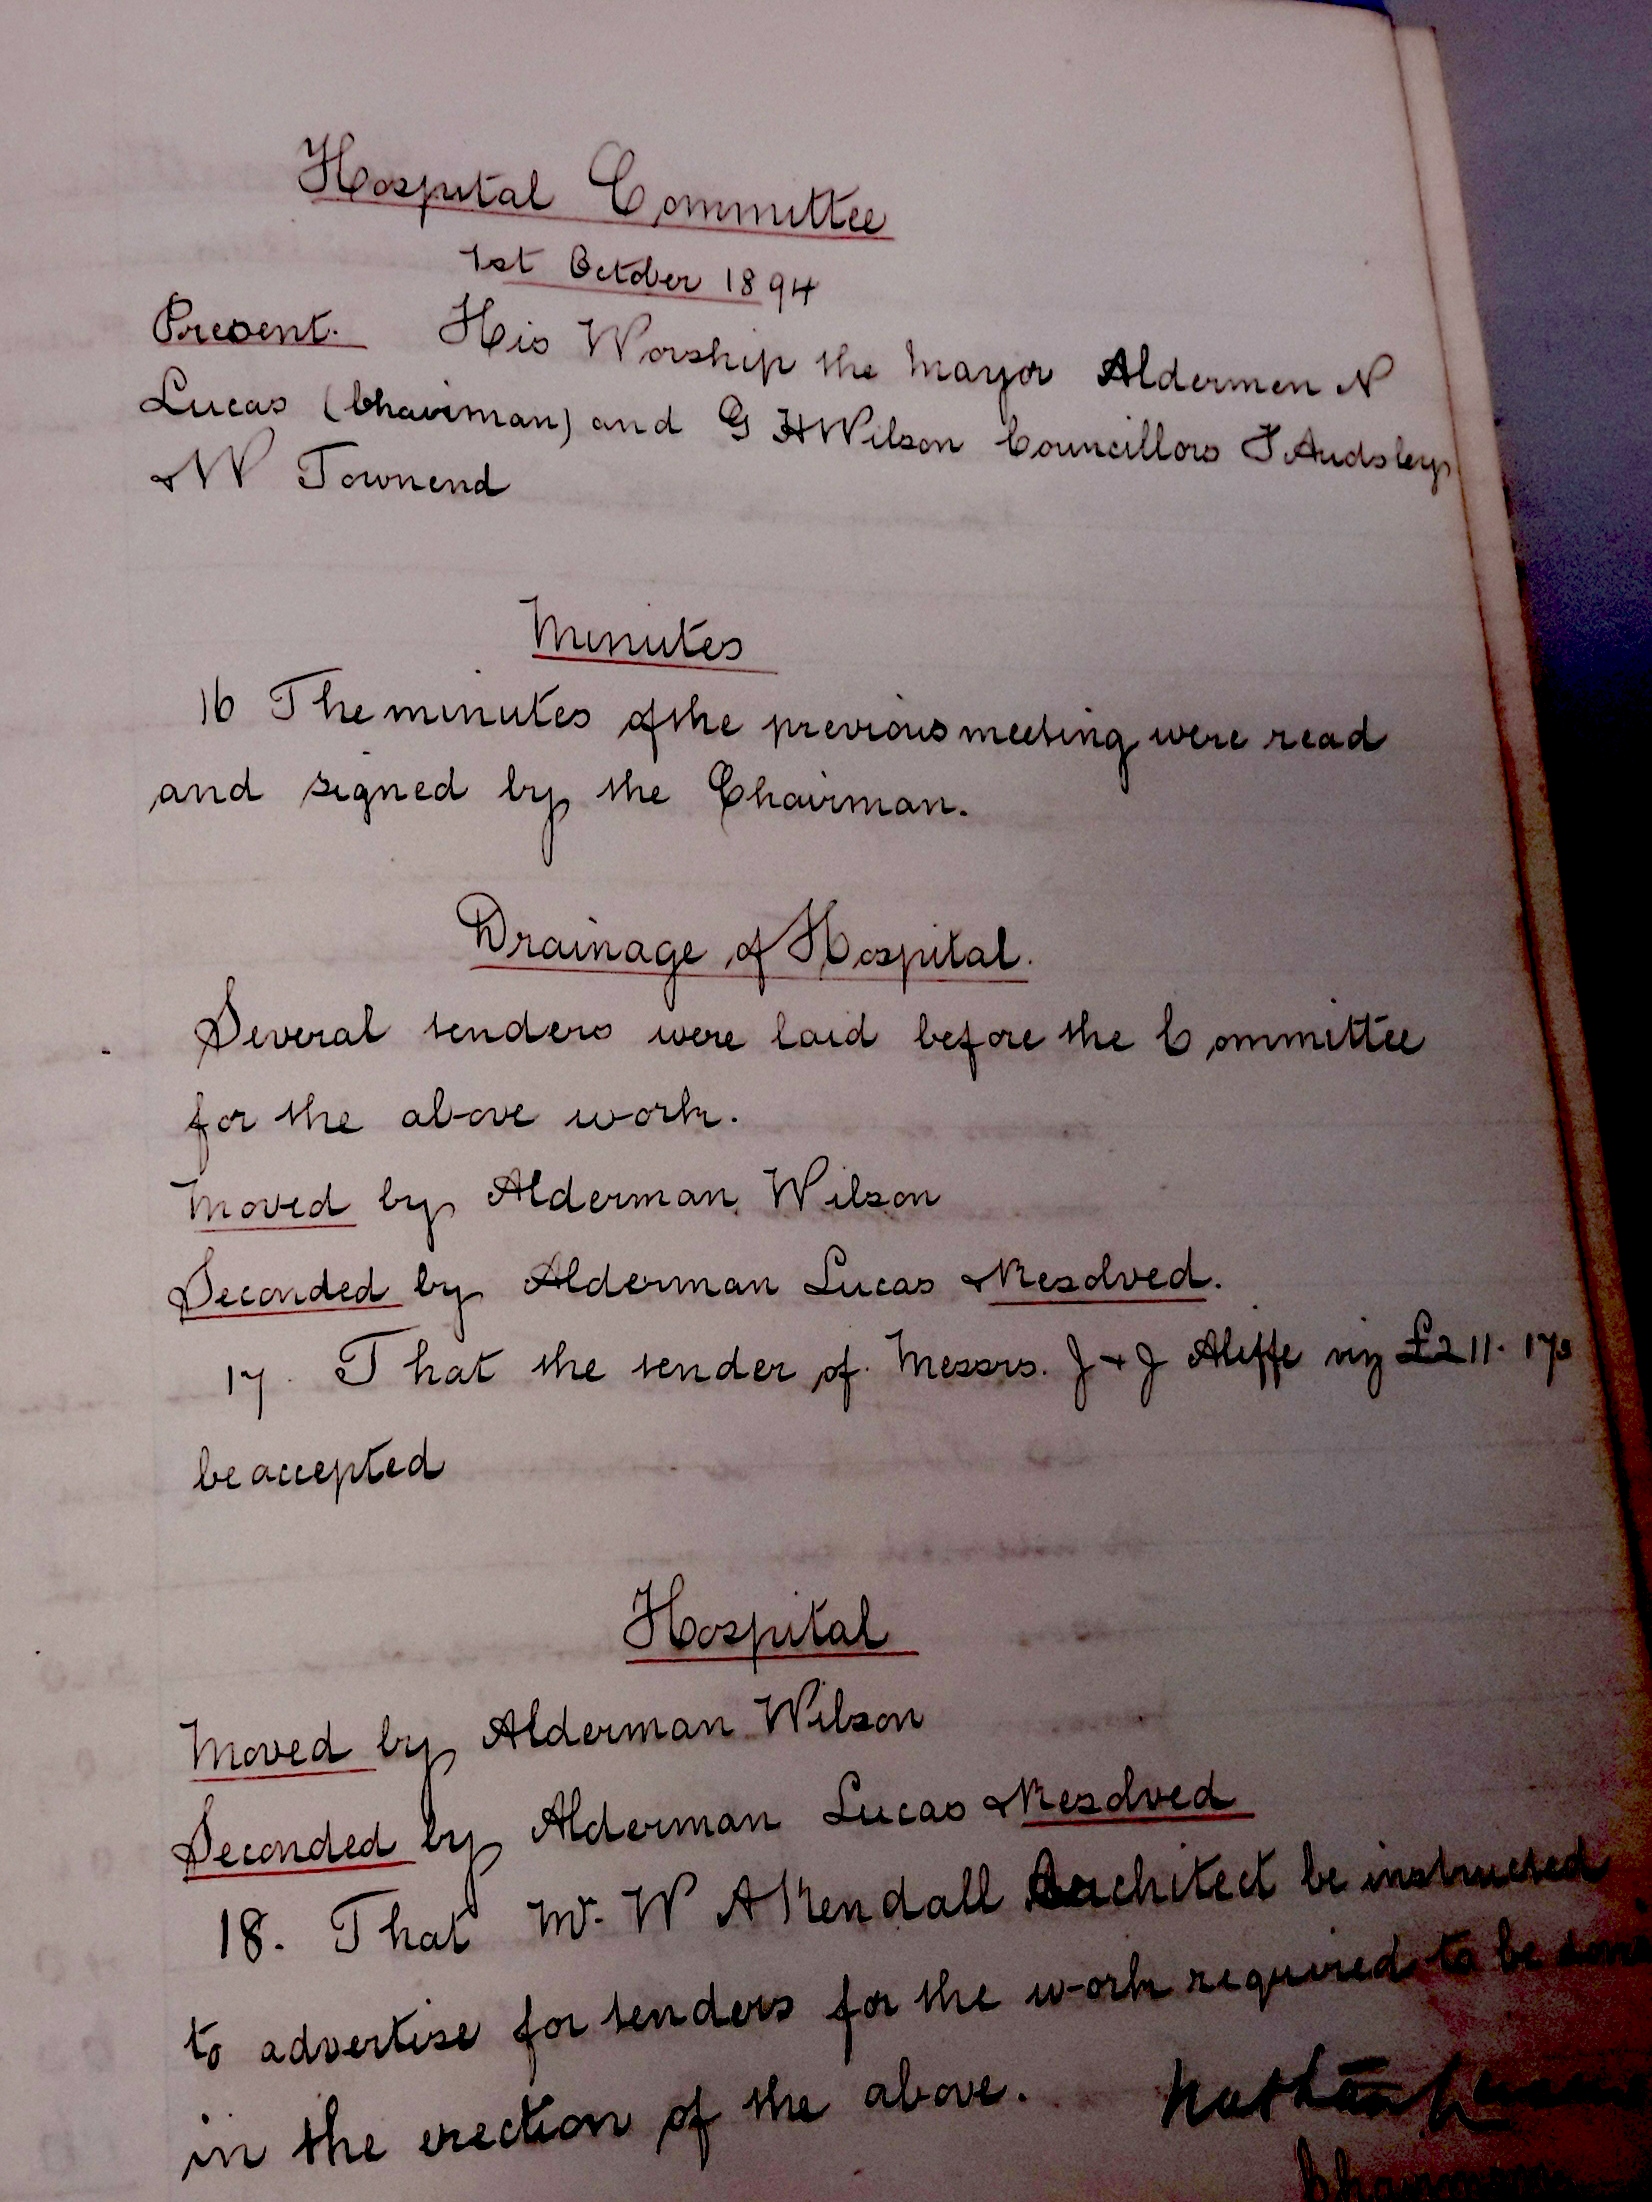 Hospital Committee
1st October 1894
Present. His Worship the Mayor Aldermen N
Lucas (Chairman) and G H Wilson Councillors J Audsley
& W Townend
Minutes
16 The minutes of the previous meeting were read
and signed by the Chairman.
Drainage of Hospital.
Several tenders were laid before the Committee
for the above work.
Moved by Alderman Wilson
Seconded by Alderman Lucas & Resolved.
17. That the tender of Messrs. J & J Aliffe viz £211. 17s
be accepted
Hospital
Moved by Alderman Wilson
Seconded by Alderman Lucas & Resolved
18. That Mr. W A Kendall Architect be instructed
to advertise for tenders for the work required to be done
in the erection of the above. Nathan Lucas
Chairman